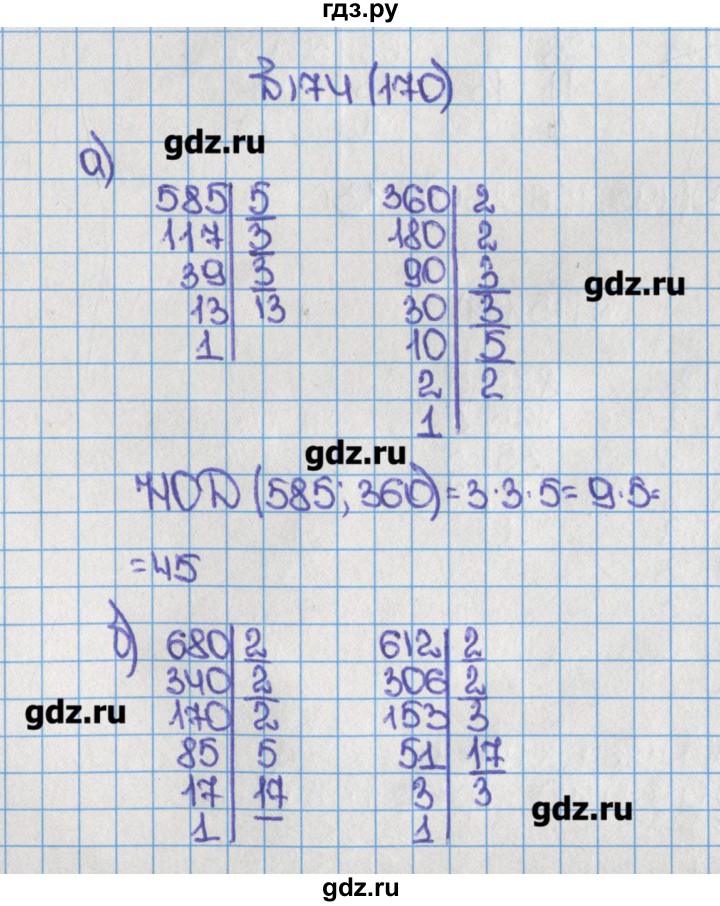 гдз.ру
В174 (170)
gdz.ru
а)
585 | 5
117 | 3
39 | 3
13 | 13
1
360 | 2
180 | 2
90 | 3
30 | 3
10 | 5
2 | 2
1
gdz.ru
gdz.ru
НОД (585; 360) = 3·3·5 = 9·5=
=45
б)
680 | 2
340 | 2
170 | 2
85 | 5
17 | 17
1
612 | 2
306 | 2
153 | 3
51 | 17
3 | 3
1
gdz.ru
gdz.ru
gdz.ru